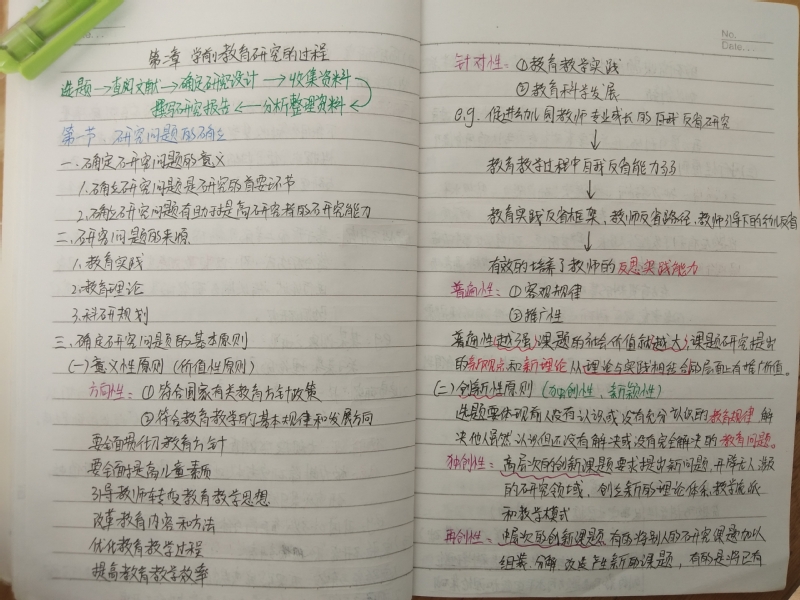 第二章 学前教育研究的过程
选题→查阅文献→确定研究设计→收集资料
撰写研究报告←分析整理资料←
第一节、研究问题的确立
一.确定研究问题的意义
1.确立研究问题是研究的首要环节
2.确立研究问题有助于提高研究者的研究能力
二.研究问题的来源
1.教育实践
2.教育理论
3.科研规划
三.确定研究问题的基本原则
(一)意义性原则(价值性原则)
方向性:①符合国家有关教育方针政策
②符合教育教学的基本规律和发展方向
要全面贯彻教育方针
要全面提高儿童素质
引导教师转变教育教学思想
改革教育内容和方法
优化教育教学过程
提高教育教学效率
No.
Date.
针对性:①教育教学实践
②教育科学发展
e.g. 促进幼儿园教师专业成长的自我反省研究
↓
教育教学过程中自我反省能力弱
↓
教育实践反省框架、教师反省路径、教师引导下的幼儿反省
↓
有效的培养了教师的反思实践能力
普遍性:①客观规律
②推广性
普遍性越强,课题的社会价值就越大;课题研究提出
的新观点和新理论从理论与实践相结合的层面上有推广价值。
(二)创新性原则(独创性、新颖性)
选题要体现前人没有认识或没有充分认识的教育规律 解
决他人虽然认识但还没有解决或没有完全解决的教育问题。
独创性:高层次的创新课题要求提出新问题,开辟无人涉及
的研究领域,创立新的理论体系,教学流派
和教学模式
再创性:中层次的创新课题 有的将别人的研究课题加以
组装、分解、改造产生新的课题,有的是将已有